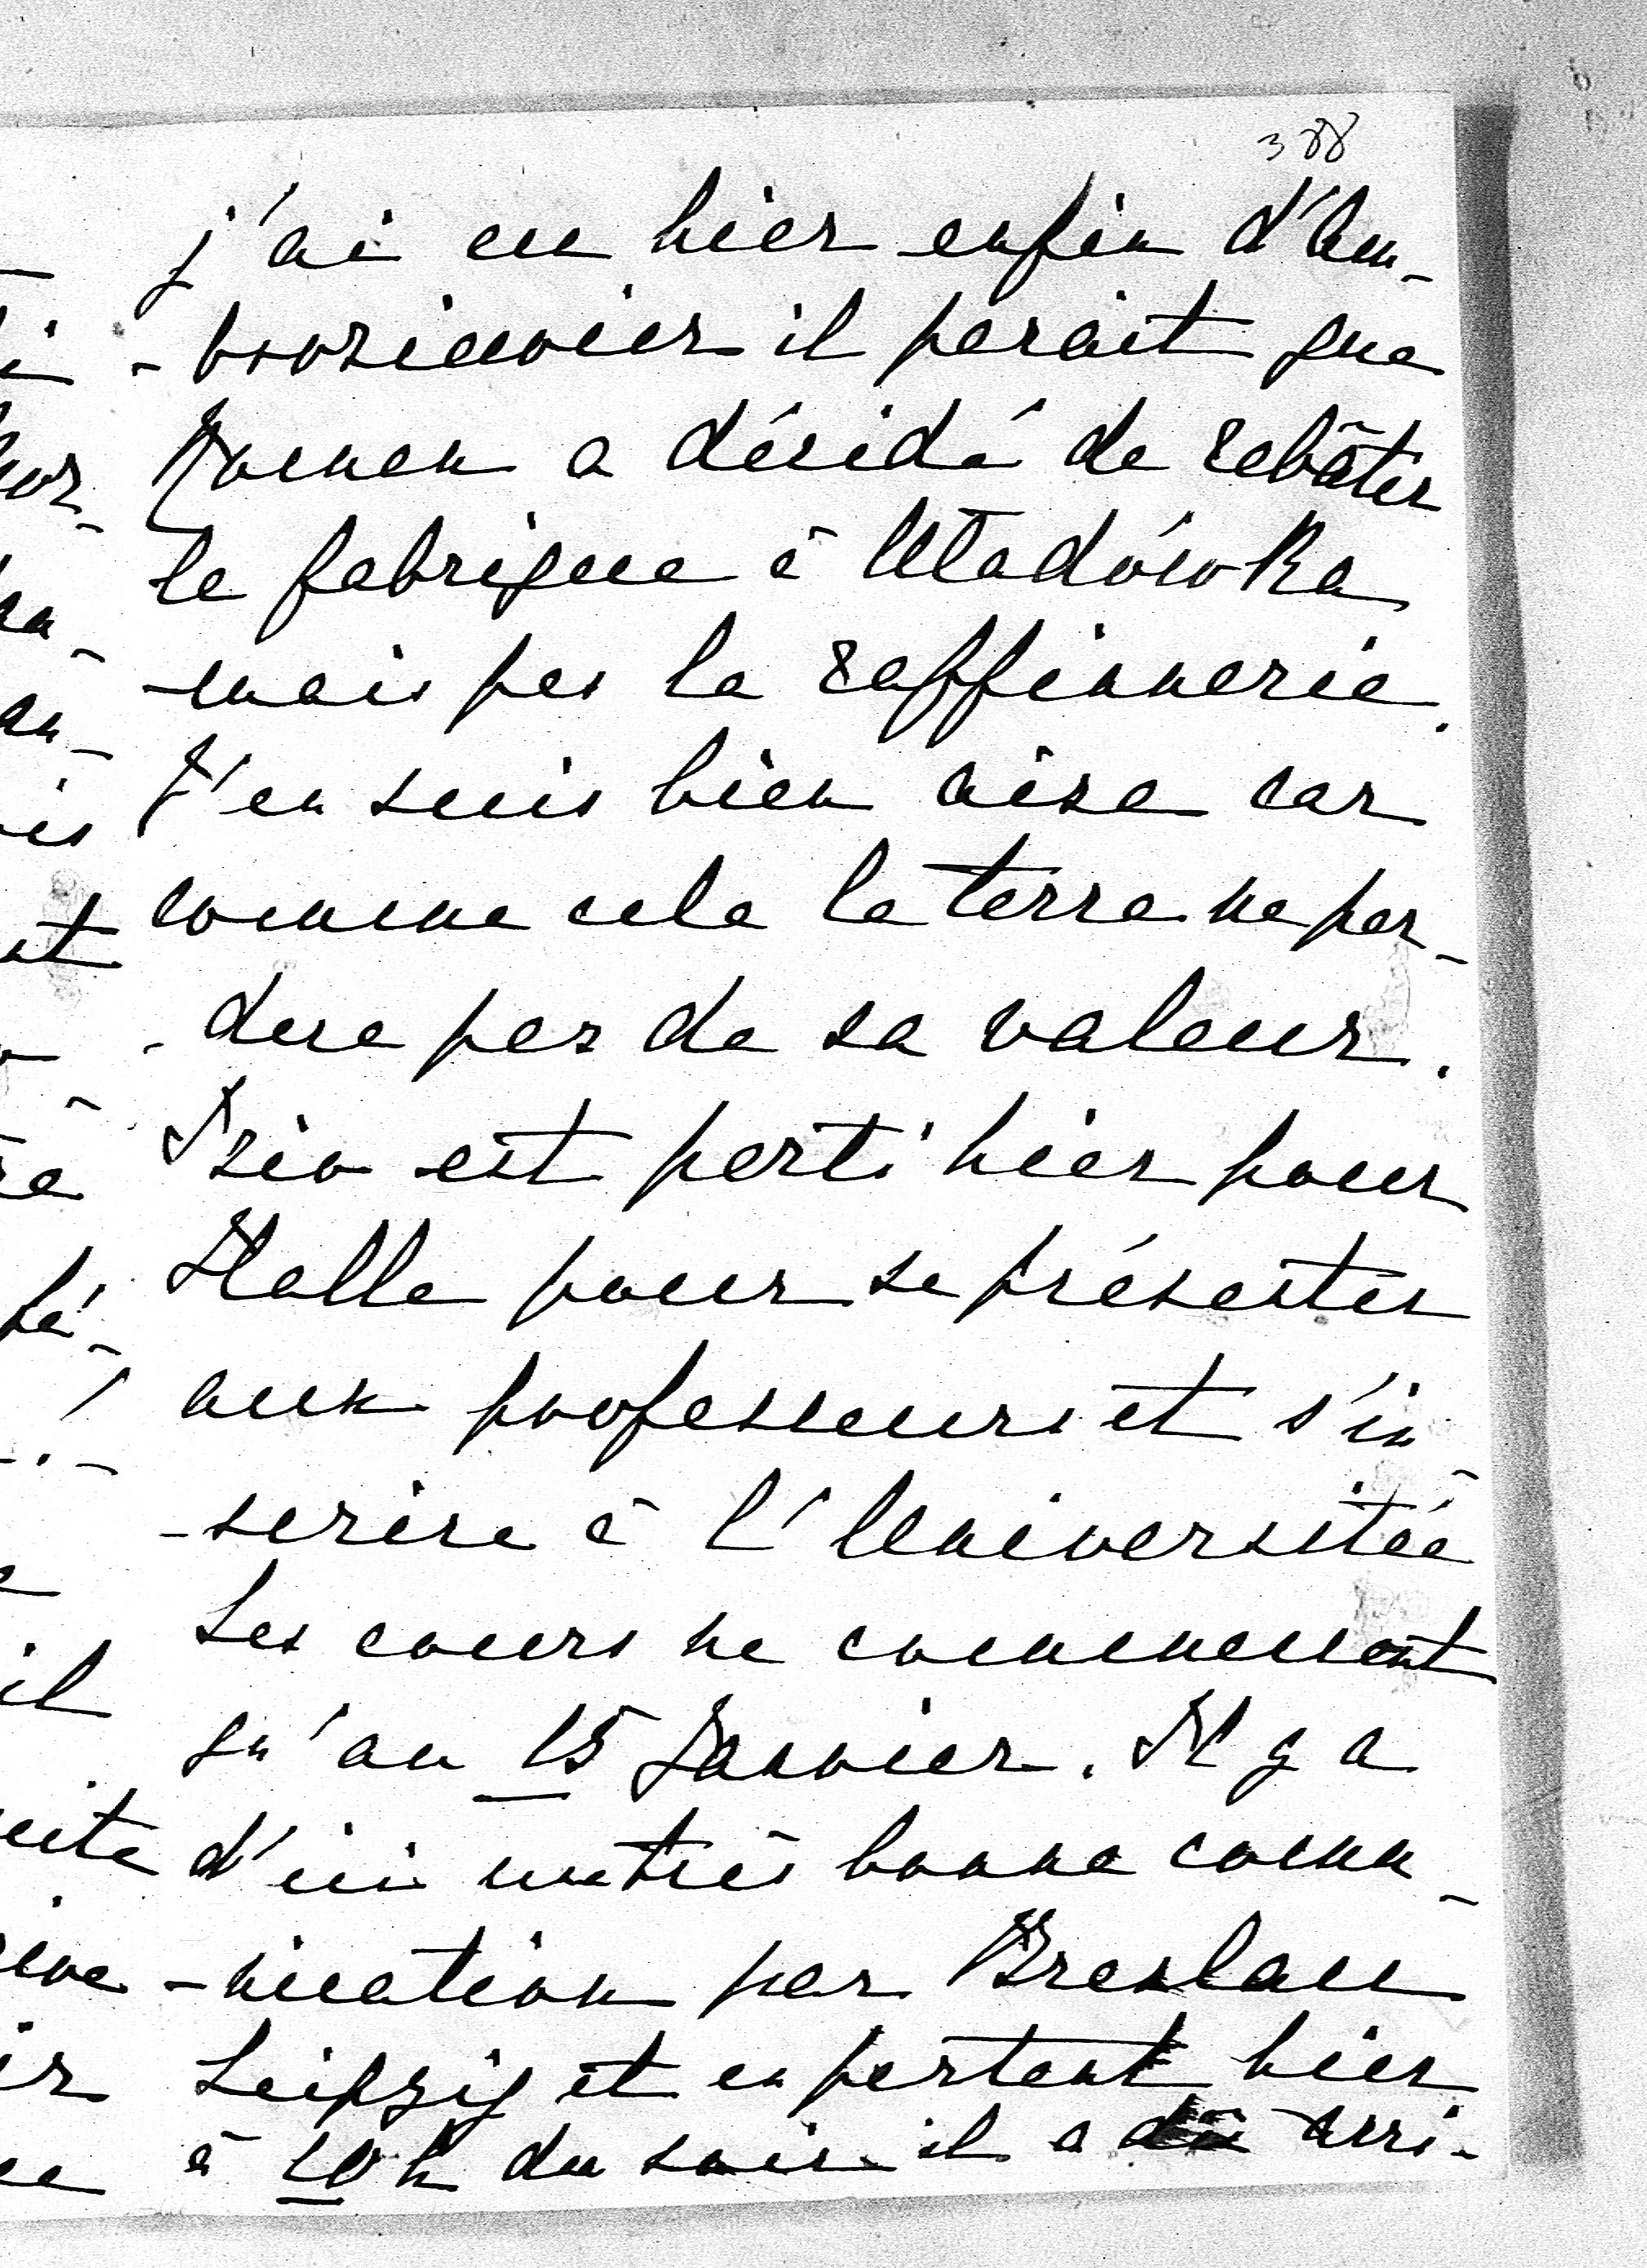 388
j'ai eu hier enfin d'Am-
-brosiewicz il parait que
Roman a décidé de rebâtir
la fabrique à Uładówka
mais pas la raffinnerie.
J'en suis bien aise car
comme cela la terre ne per-
-dera pas de sa valeur.
est parti hier pour
Halle pour se présenter
aux professeurs et s'in
-scrire à l'Universitée
Les cours ne commencent
qu'au 15 Janvier. Il y a
d'ici une très bonne commu-
-nication par Breslau
Leipzig et en partant hier
à 10 h du soir il a dû arri-